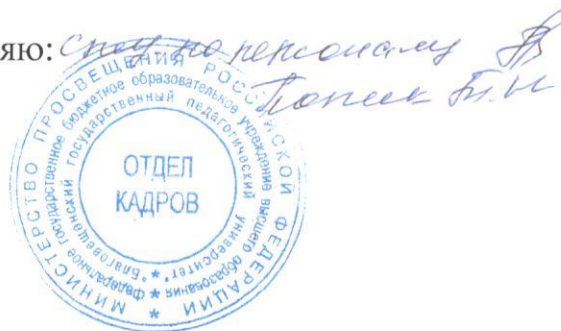 яю: по персоналу
МИНИСТЕРСТВО ПРОСВЕЩЕНИЯ РОССИЙСКОЙ ФЕДЕРАЦИИ *
Федеральное государственное бюджетное образовательное учреждение высшего образования *
"Благовещенский государственный педагогический университет" *
ОТДЕЛ
КАДРОВ